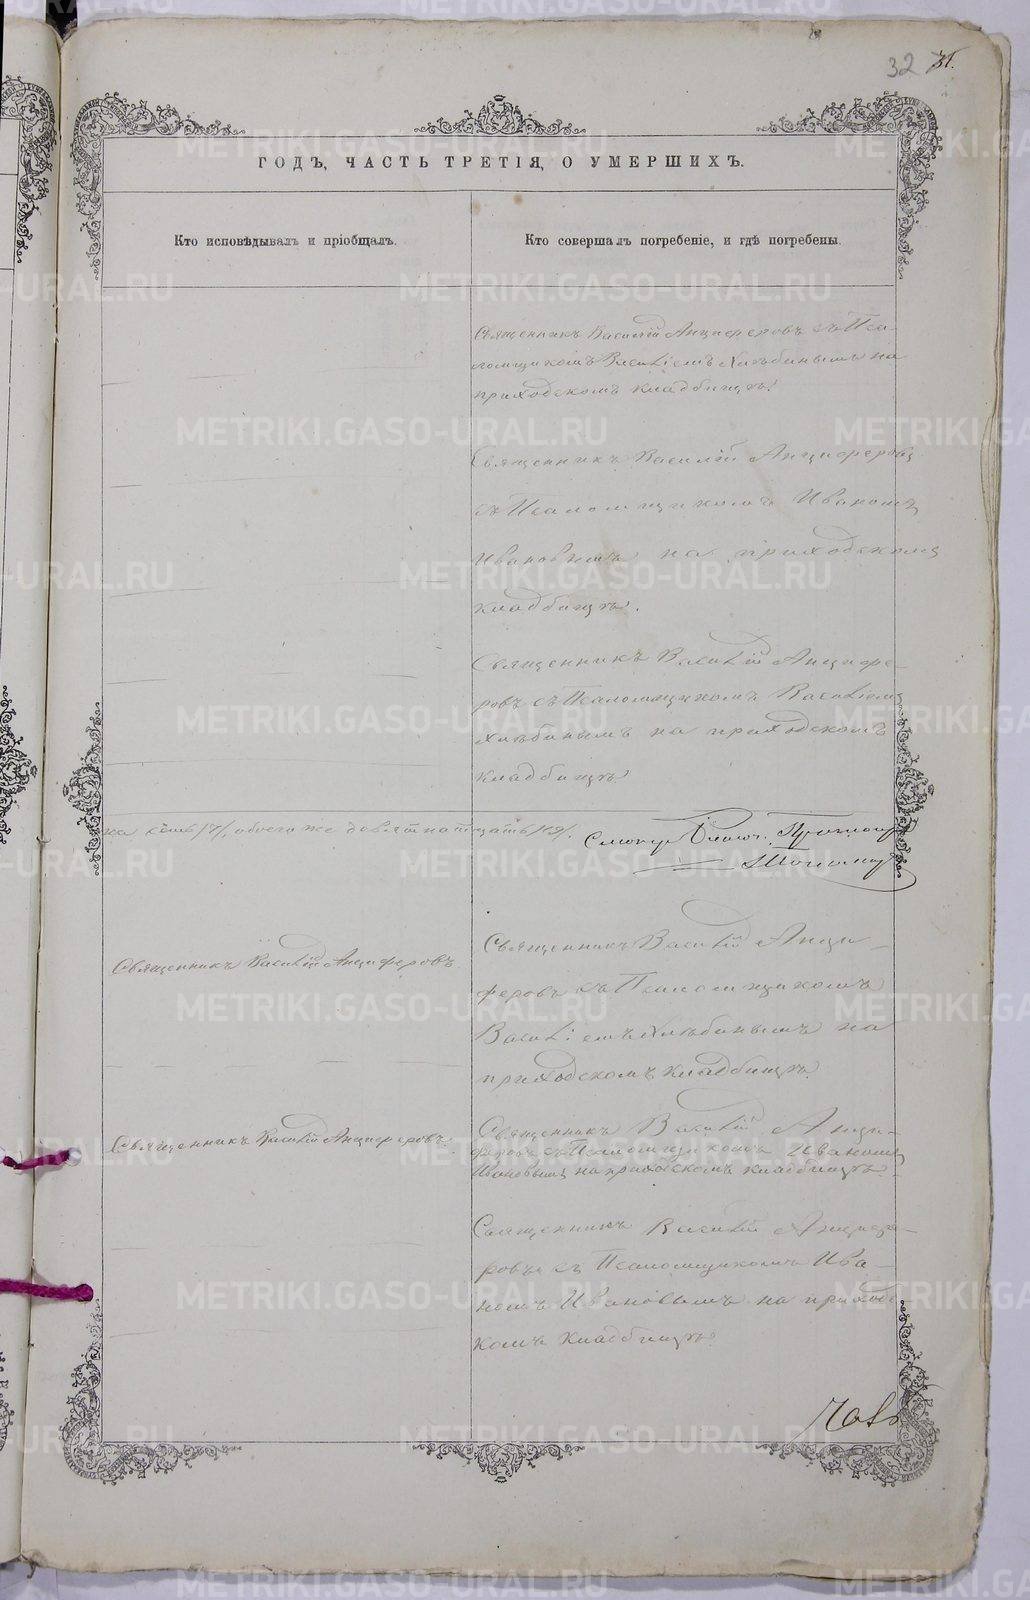 32 31.
ГОДЪ, ЧАСТЬ ТРЕТІЯ, О УМЕРШИХЪ.
Кто исповѣдывалъ и пріобщалъ.
Кто совершалъ погребеніе, и гдѣ погребены.
Священникъ Василій Анциферовъ съ Пса-
ломщикомъ Василіемъ Хлѣбинымъ на
приходскомъ кладбищѣ.
Священникъ Василій Анциферовъ
съ Псаломщикомъ Иваномъ
Ивановымъ на приходскомъ
кладбищѣ.
Священникъ Василій Анцифе-
ровъ съ Псаломщикомъ Василіемъ
Хлѣбинымъ на приходскомъ
кладбищѣ
на /7/, обоего же девятнатцать /19/.
Священникъ Василій Анциферовъ
Священникъ Василій Анци-
феровъ съ Псаломщикомъ
Василіемъ Хлѣбинымъ на
приходскомъ кладбищѣ.
Священникъ Василій Анциферовъ
Священникъ Василій Анци-
феровъ съ Псаломщикомъ Иваномъ
Ивановымъ на приходскомъ кладбищѣ.
Священникъ Василій Анцифе-
ровъ съ Псаломщикомъ Ива-
номъ Ивановымъ на приход-
комъ кладбищѣ
METRIKI.GASO-URAL.RU